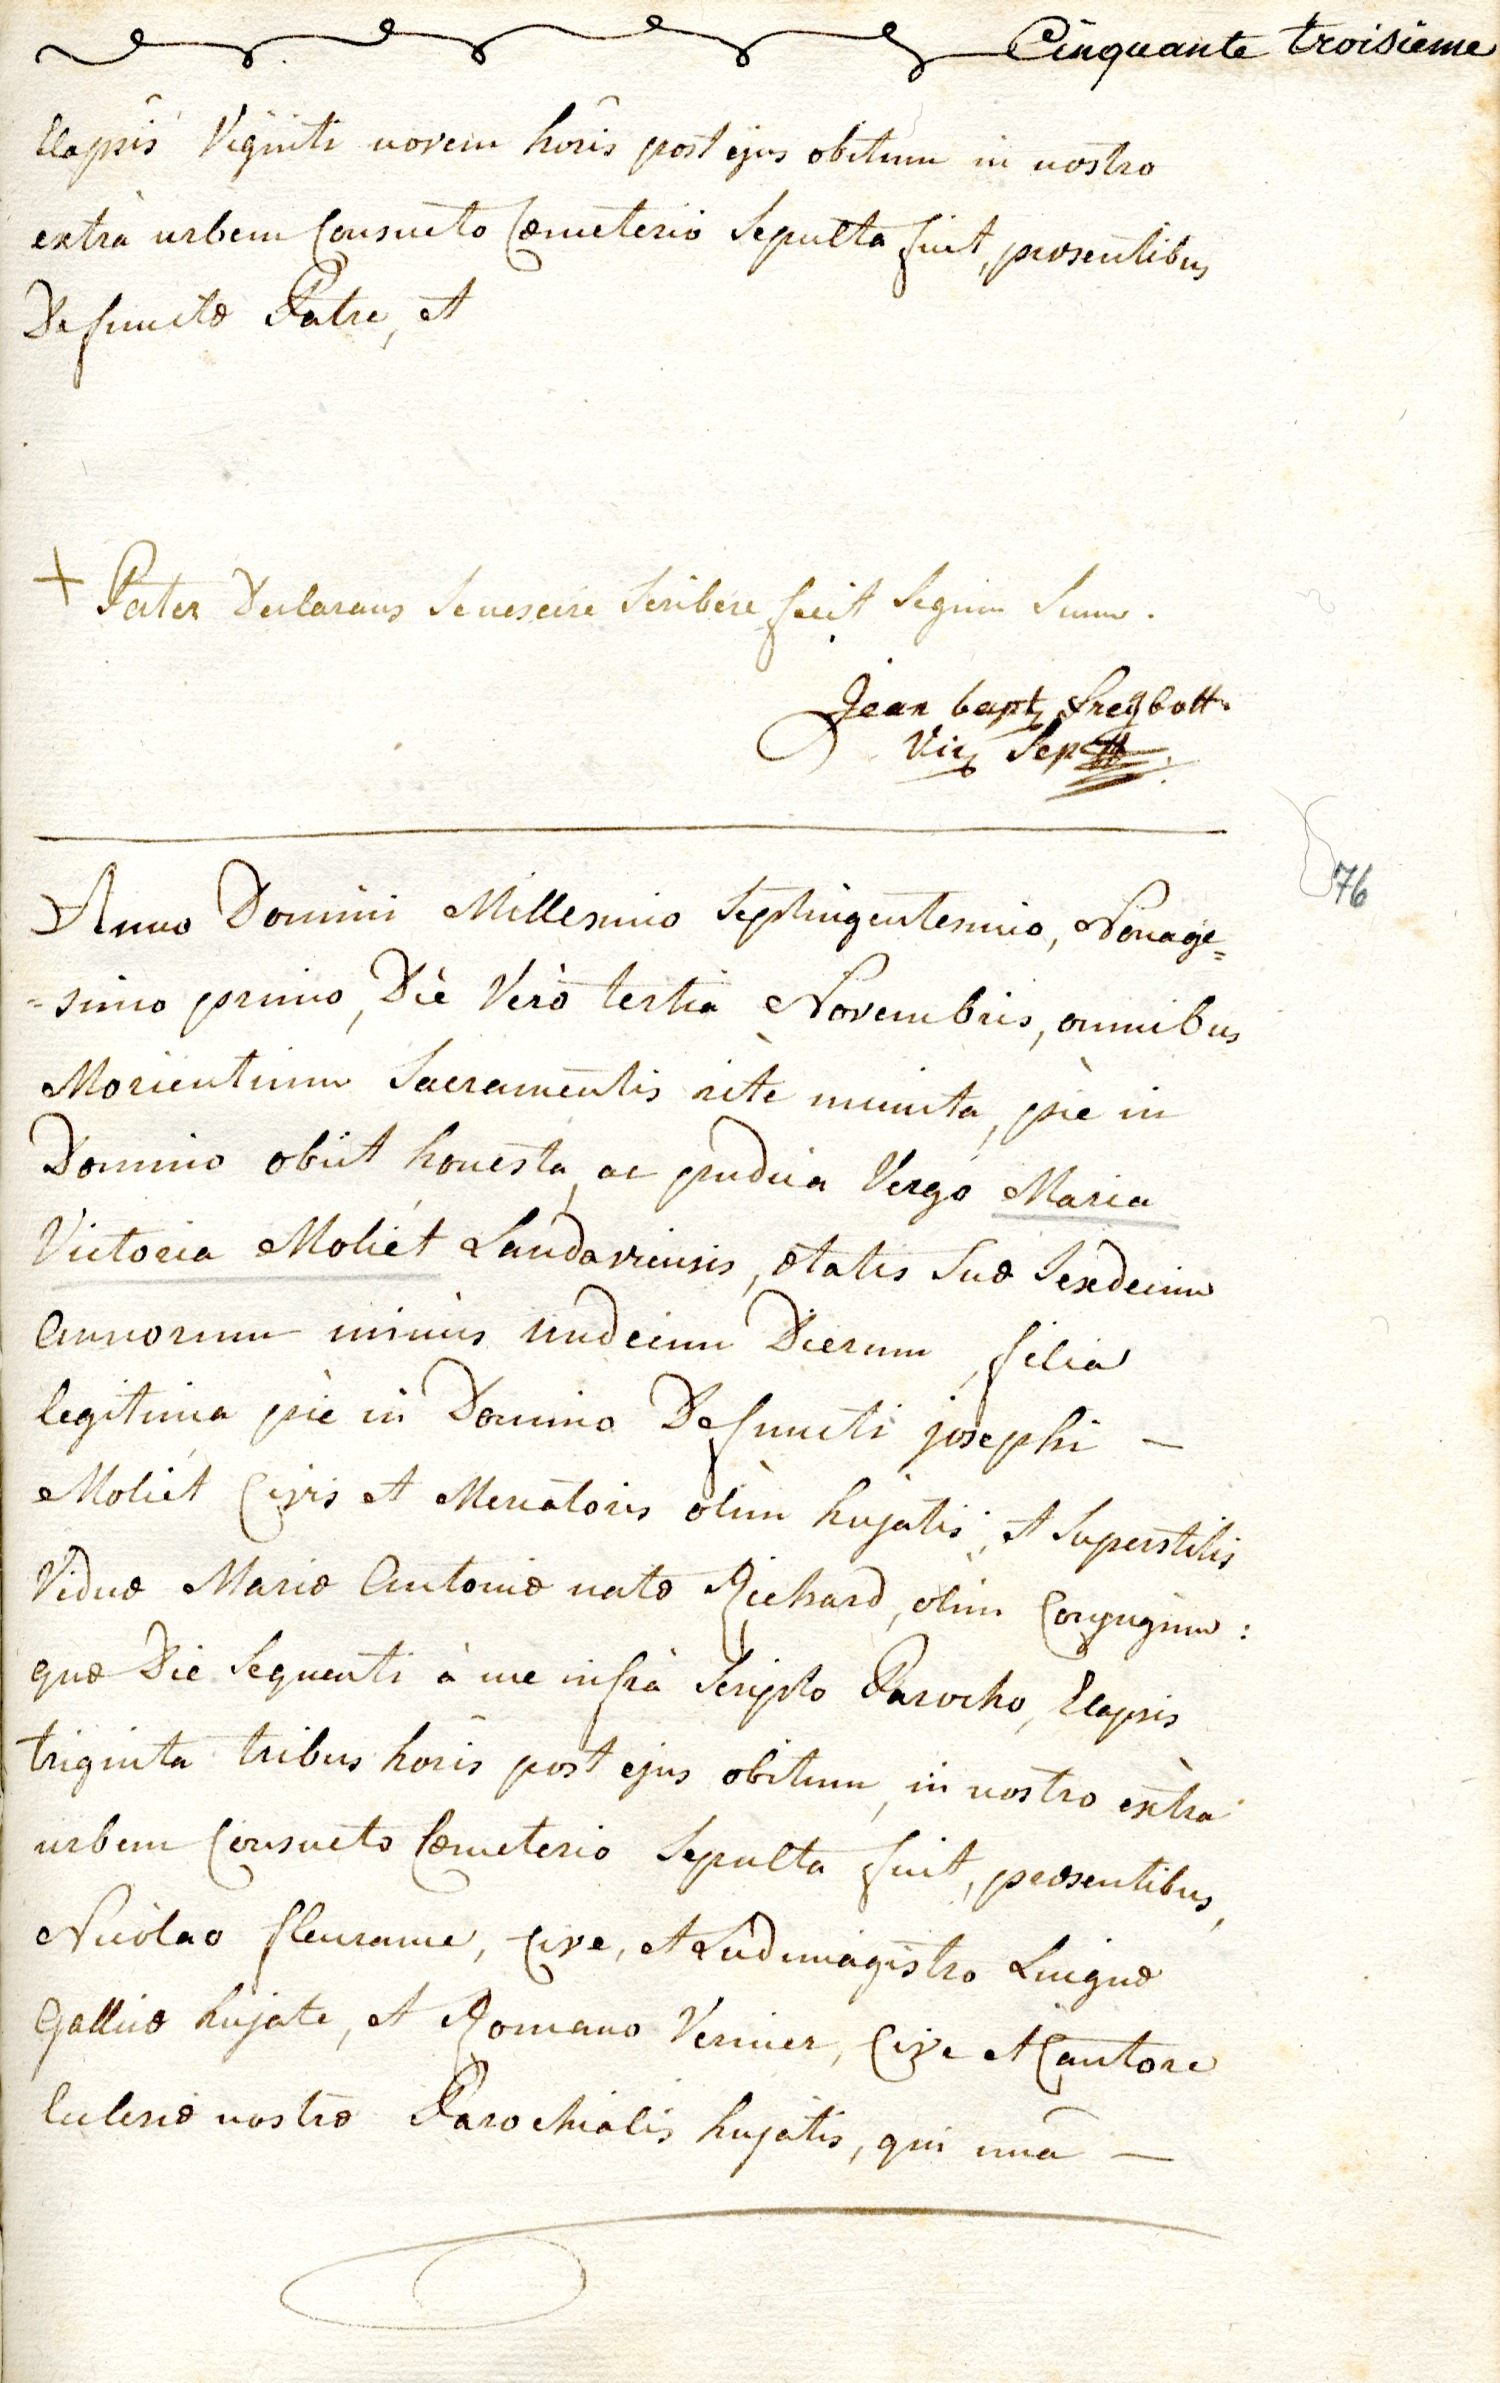 Cinquante troisieme
Elapsis Viginti novem horis post ejus obitum in nostro
extrà urbem Consueto Cœmeterio Sepulta fuit, præsentibus
Defunctæ Patre, et
+ Pater Declarans Se nescire Scribere fecit Signum Suum.
Jean bapt freÿbott
Vic Sept
Anno Domini Millesimo Septingentesimo, Nonage=
=simo primo, Die Verò tertia Novembris, omnibus
Morientium Sacramentis ritè munita, piè in
Domino obiit honesta, ac pudica Virgo Maria
Victoria Moliét Landaviensis, ætatis Suæ Sexdecim
Annorum minùs undecim Dierum, filia
legitima piè in Domino Defuncti josephi —
Moliét Civis et Mercatoris olim hujatis, et Superstitis
Viduæ Mariæ Antoniæ natæ Richard, olim Conjugum:
quæ Die Sequenti à me infrà Scripto Parocho, Elapsis
triginta tribus horis post ejus obitum, in nostro extrà
urbem Consueto Cœmeterio Sepulta fuit, præsentibus,
Nicolao fleurame, Cive, et Ludimagistro Linguæ
Gallicæ hujate, et Romano Vernier, Cive et Cantore
Ecclesiæ nostræ Parochialis hujatis, qui unà —
76